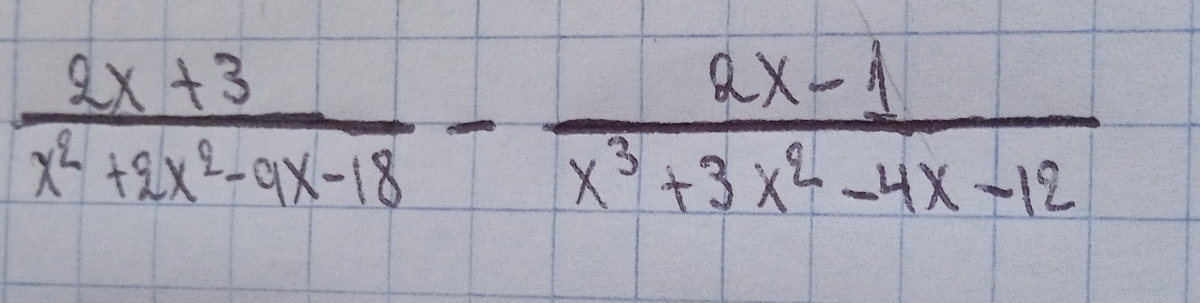 2x + 3 / x² + 2x² - 9x - 18 - 2x - 1 / x³ + 3x² - 4x - 12